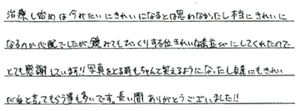 治療し始めは今みたいにきれいになるとは思わなかったし本当にきれいに
なるのか心配でしたが鏡みてもびっくりする位きれいな歯並びにしてくれたので
とても感謝しています!!写真をとる時もちゃんと笑えるようになったし友達にもきれい
だねと言ってもらう事も多いです。長い間ありがとうございました!!